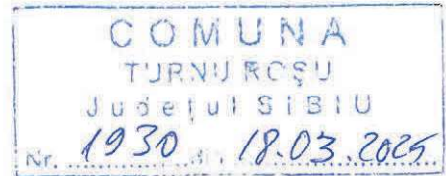 COMUNA
TURNU ROȘU
Județul SIBIU
Nr. 1930 din 18.03.2025